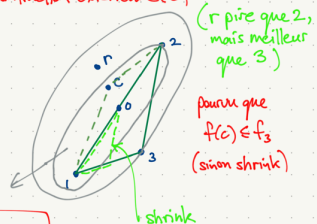 (r pire que 2,
mais meilleur
que 3)
r
2
c
o
pourvu que
f(c) ≤ f₃
(sinon shrink)
3
1
shrink